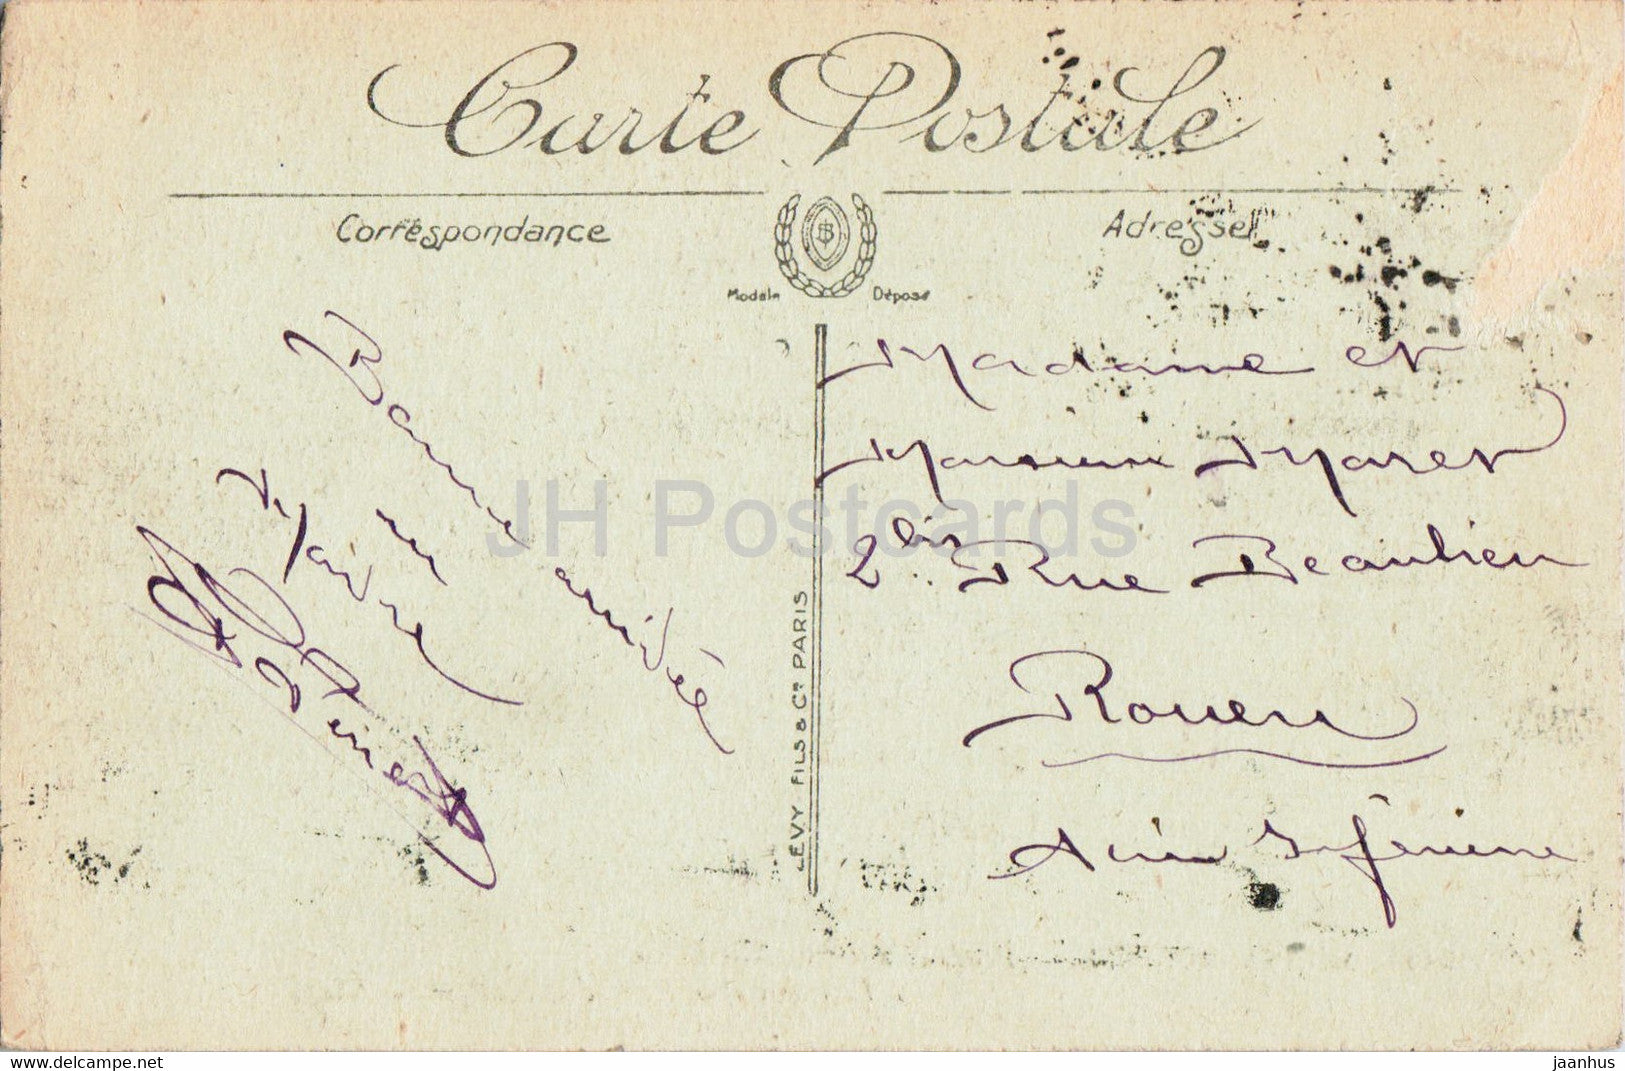 Carte Postale
Correspondance
Adresse
Modèle Déposé
Bonne arrivée
LÉVY FILS & Cie PARIS
Madame et
Monsieur Maret
2 bis Rue Beaulieu
Rouen
Seine Inférieure
JH Postcards
www.delcampe.net
jaanhus